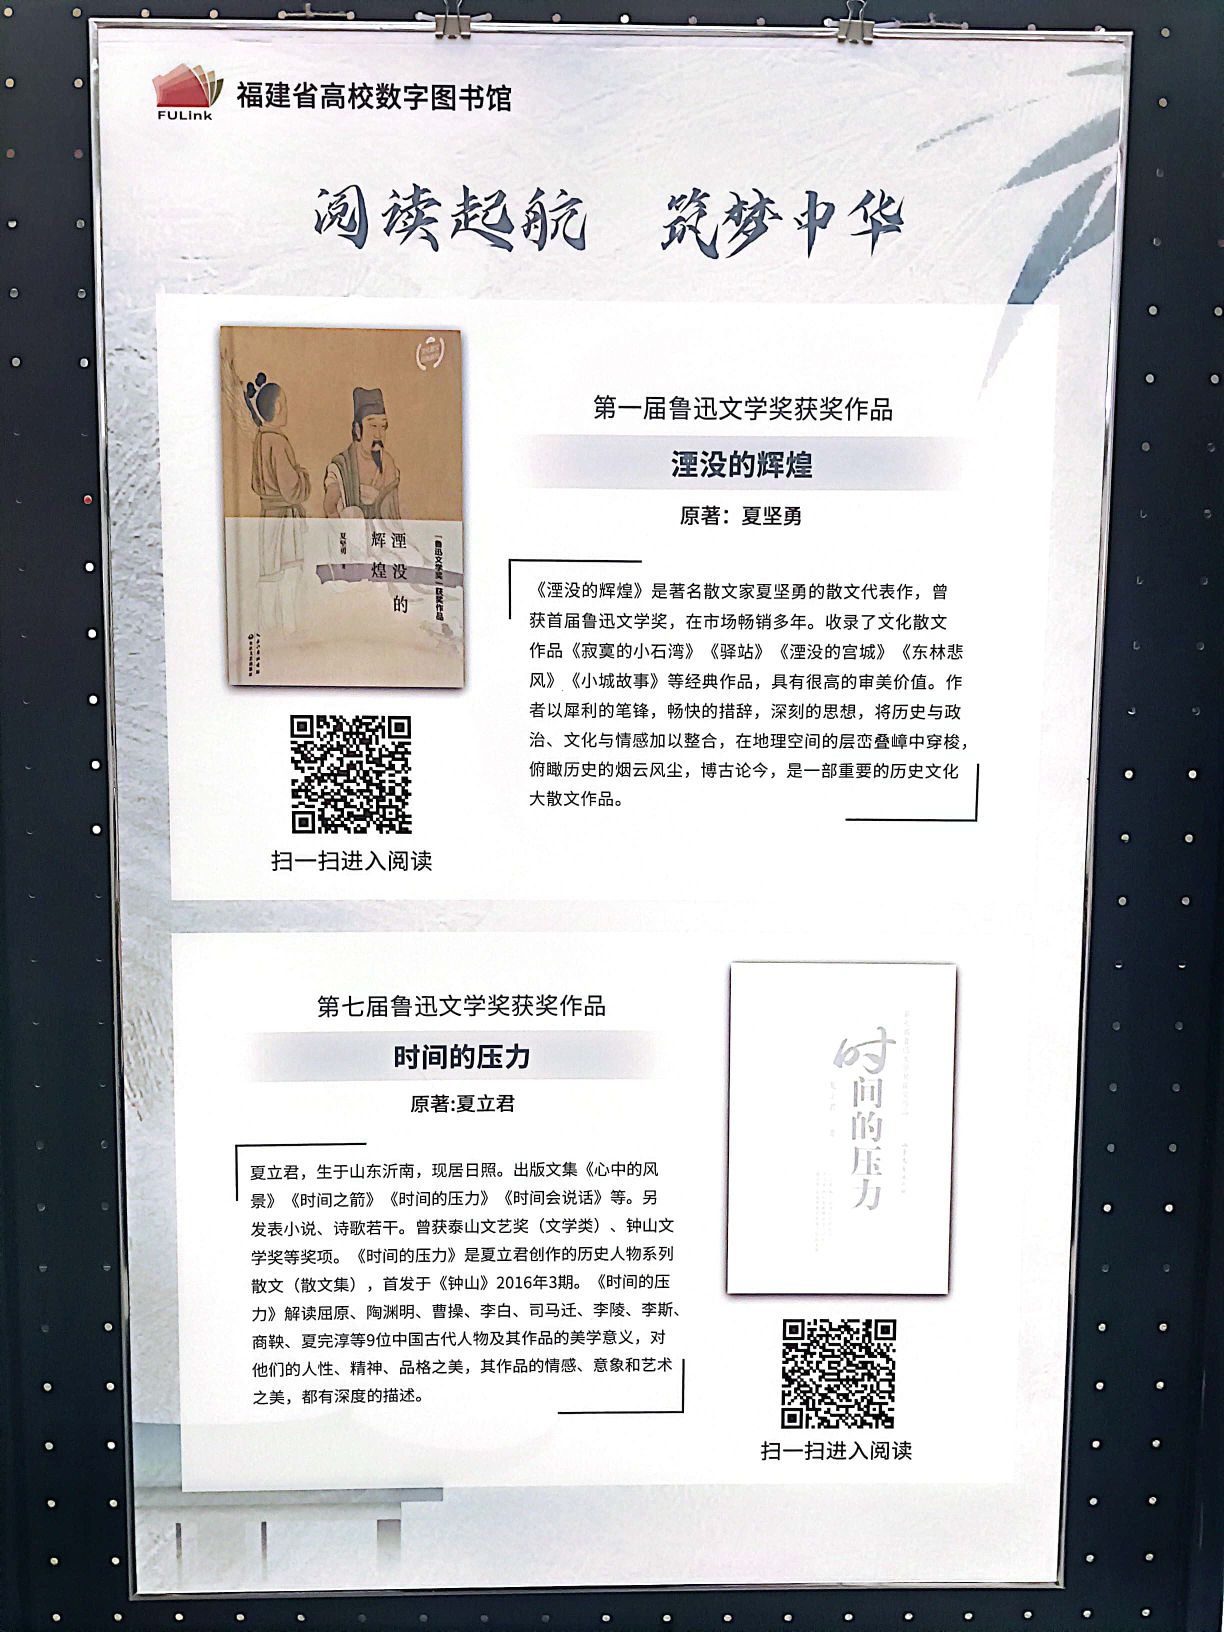 FULink
福建省高校数字图书馆
阅读起航 筑梦中华
第一届鲁迅文学奖获奖作品
湮没的辉煌
原著：夏坚勇
「鲁迅文学奖」获奖作品
湮没的
辉煌
夏坚勇 著
《湮没的辉煌》是著名散文家夏坚勇的散文代表作，曾
获首届鲁迅文学奖，在市场畅销多年。收录了文化散文
作品《寂寞的小石湾》《驿站》《湮没的宫城》《东林悲
风》《小城故事》等经典作品，具有很高的审美价值。作
者以犀利的笔锋，畅快的措辞，深刻的思想，将历史与政
治、文化与情感加以整合，在地理空间的层峦叠嶂中穿梭，
俯瞰历史的烟云风尘，博古论今，是一部重要的历史文化
大散文作品。
扫一扫进入阅读
第七届鲁迅文学奖获奖作品
时间的压力
原著:夏立君
夏立君，生于山东沂南，现居日照。出版文集《心中的风
景》《时间之箭》《时间的压力》《时间会说话》等。另
发表小说、诗歌若干。曾获泰山文艺奖（文学类）、钟山文
学奖等奖项。《时间的压力》是夏立君创作的历史人物系列
散文（散文集），首发于《钟山》2016年3期。《时间的压
力》解读屈原、陶渊明、曹操、李白、司马迁、李陵、李斯、
商鞅、夏完淳等9位中国古代人物及其作品的美学意义，对
他们的人性、精神、品格之美，其作品的情感、意象和艺术
之美，都有深度的描述。
时间的压力
扫一扫进入阅读